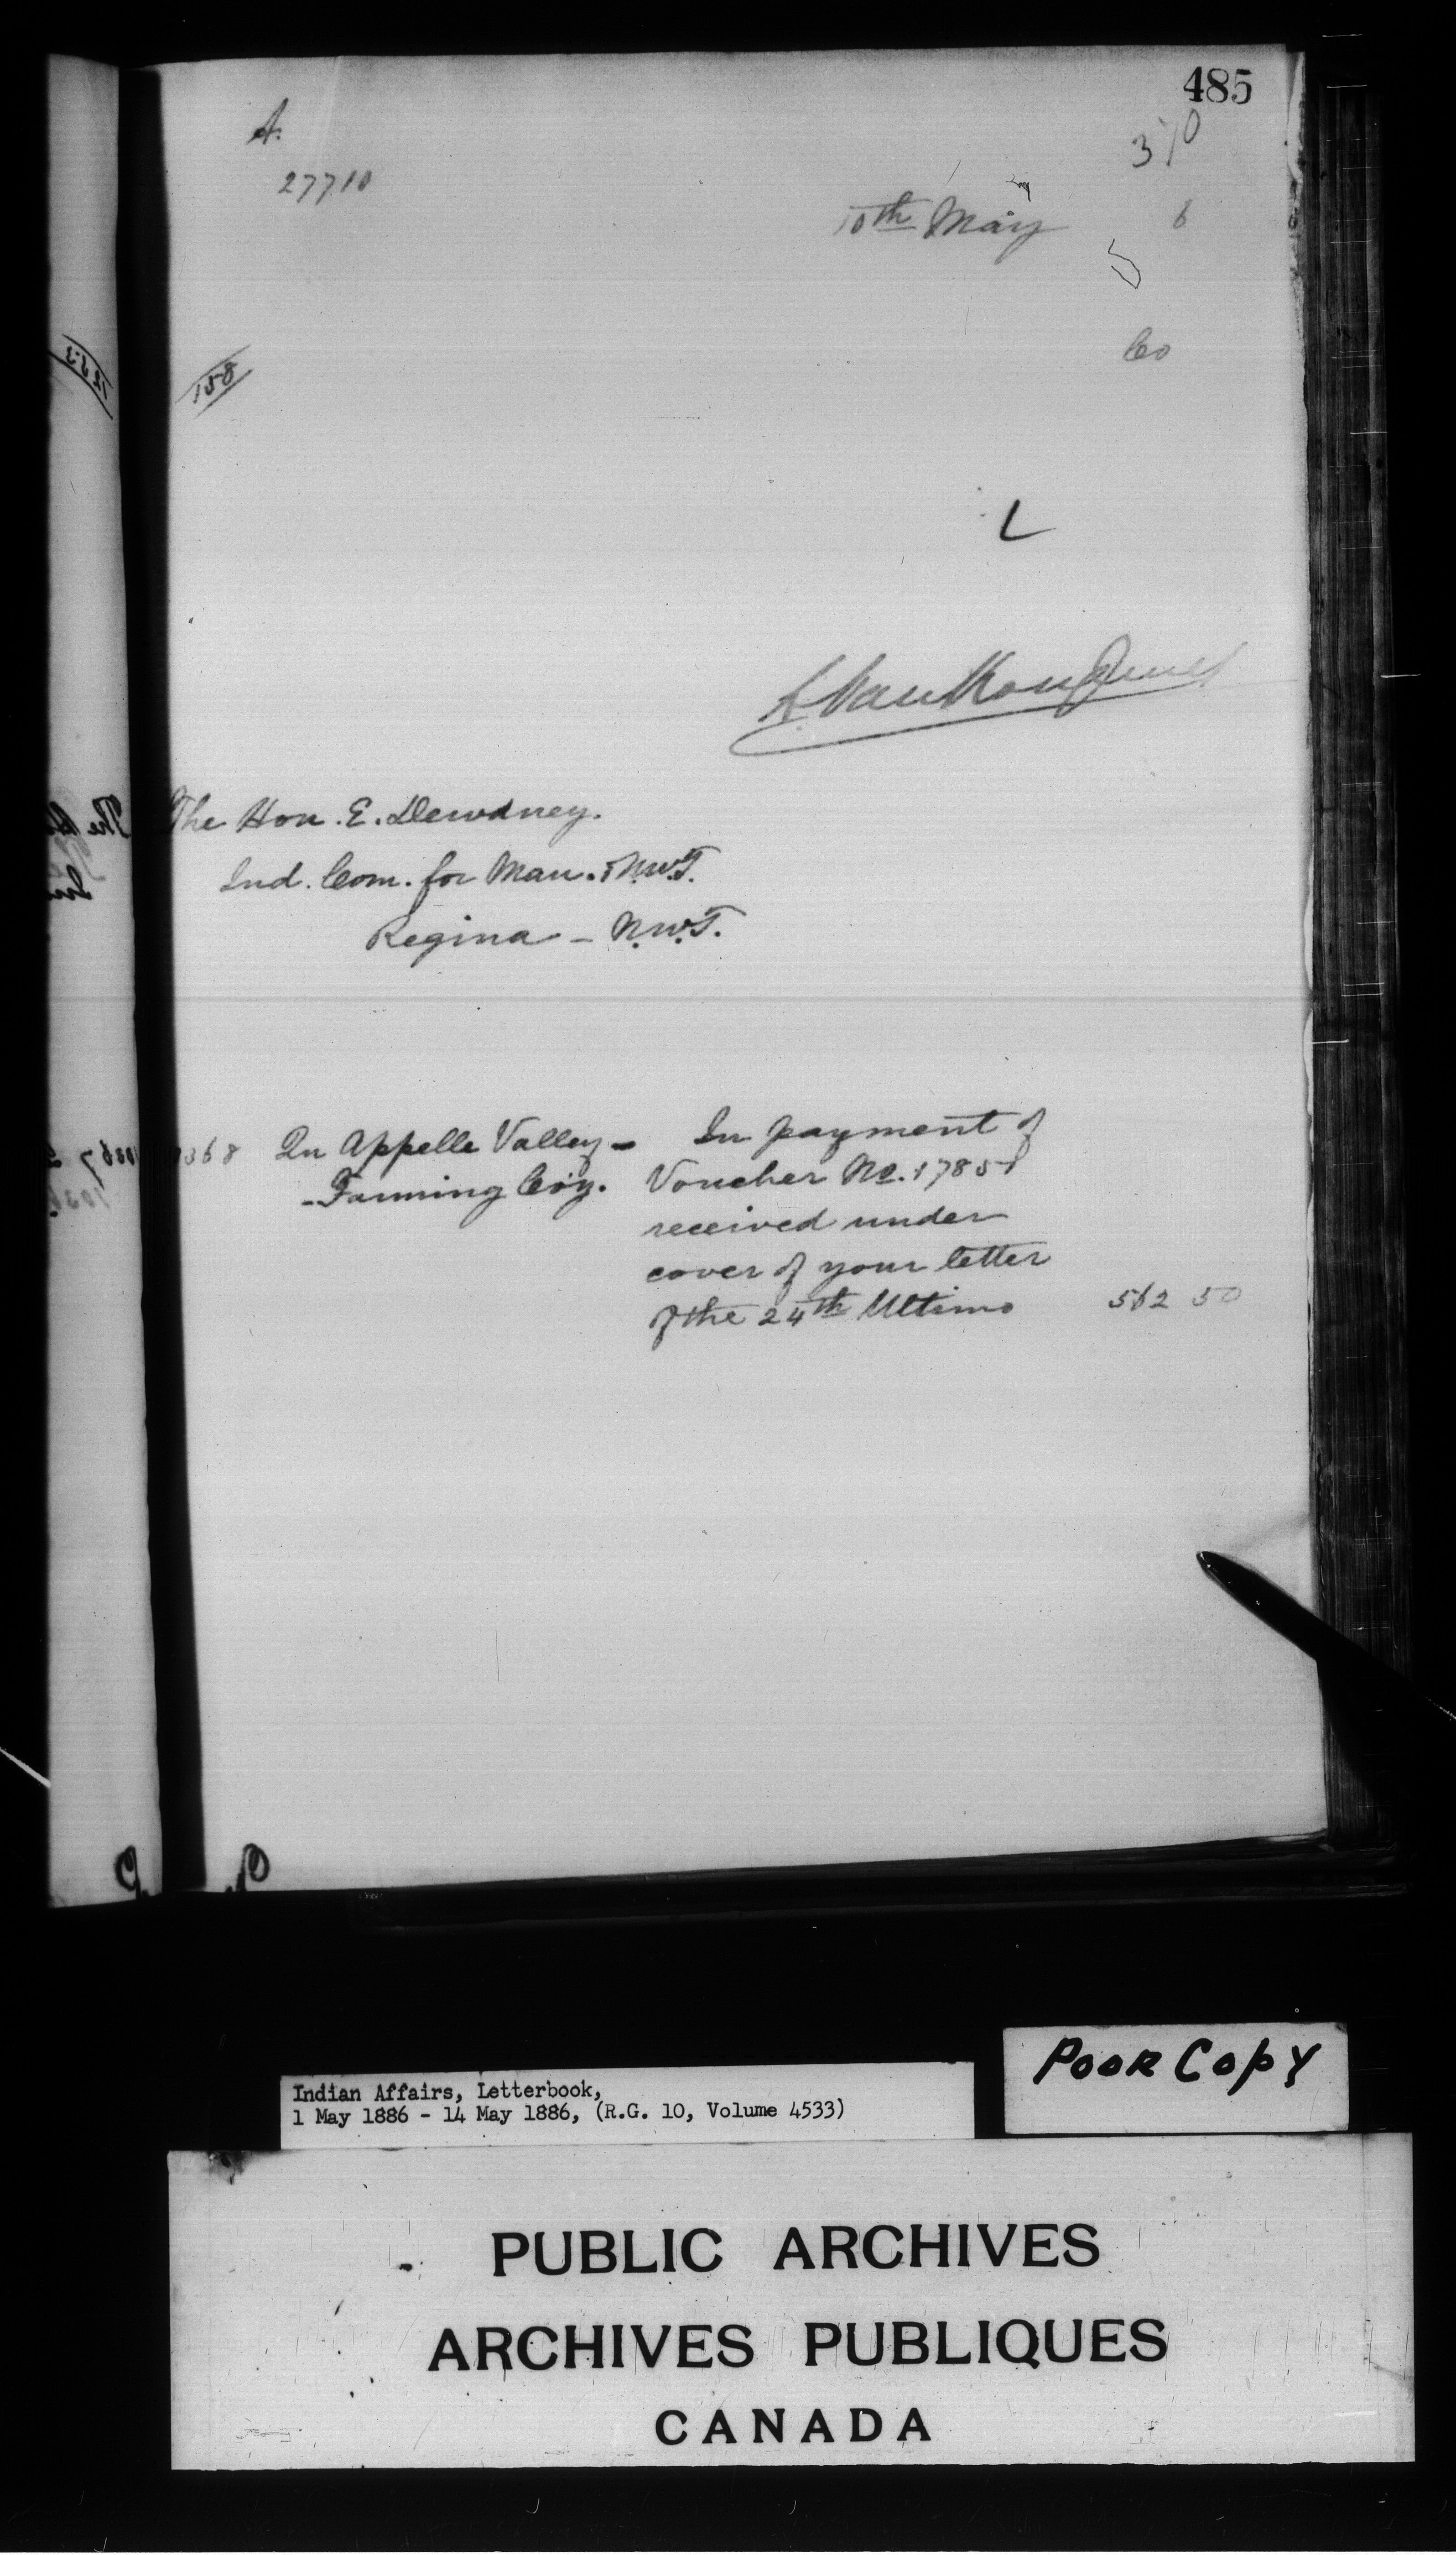 485
A.
370
27710
10th May
6
Co
158
L
L. VanKoughnet
The Hon. E. Dewdney.
Ind. Com. for Man. & N.W.T.
Regina - N.W.T.
368 Qu Appelle Valley - In payment of
- Farming Coy. Voucher No. 1785
received under
cover of your letter
of the 24th Ultimo 562 50
Poor Copy
Indian Affairs, Letterbook,
1 May 1886 - 14 May 1886, (R.G. 10, Volume 4533)
PUBLIC ARCHIVES
ARCHIVES PUBLIQUES
CANADA